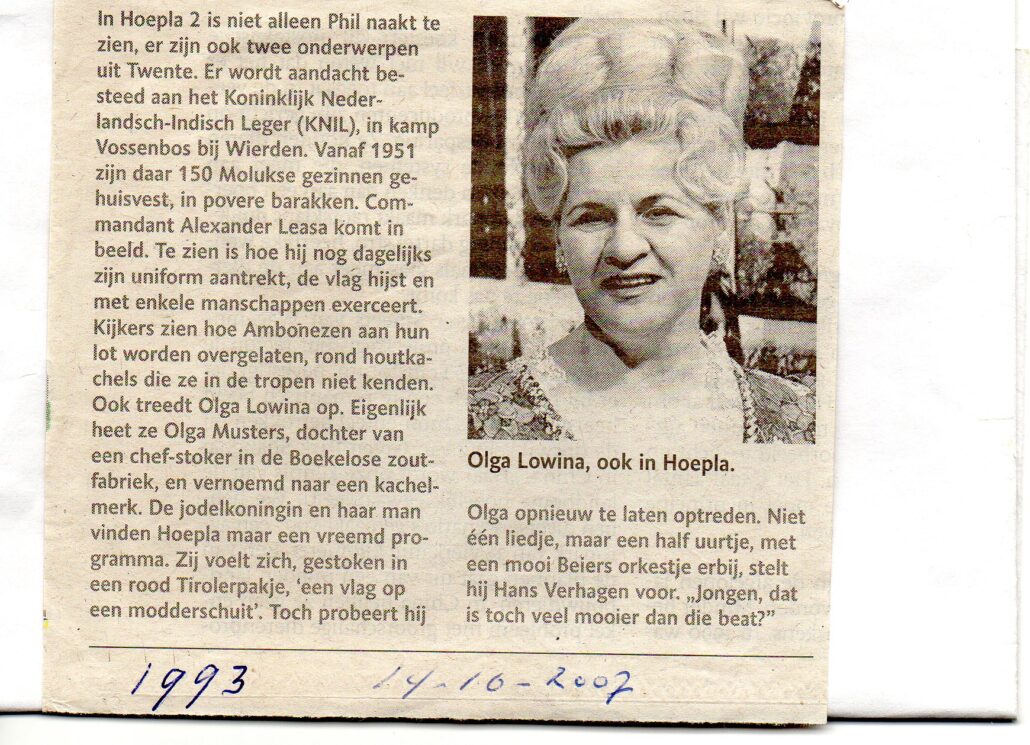 In Hoepla 2 is niet alleen Phil naakt te
zien, er zijn ook twee onderwerpen
uit Twente. Er wordt aandacht be-
steed aan het Koninklijk Neder-
landsch-Indisch Leger (KNIL), in kamp
Vossenbos bij Wierden. Vanaf 1951
zijn daar 150 Molukse gezinnen ge-
huisvest, in povere barakken. Com-
mandant Alexander Leasa komt in
beeld. Te zien is hoe hij nog dagelijks
zijn uniform aantrekt, de vlag hijst en
met enkele manschappen exerceert.
Kijkers zien hoe Ambonezen aan hun
lot worden overgelaten, rond houtka-
chels die ze in de tropen niet kenden.
Ook treedt Olga Lowina op. Eigenlijk
heet ze Olga Musters, dochter van
een chef-stoker in de Boekelose zout-
fabriek, en vernoemd naar een kachel-
merk. De jodelkoningin en haar man
vinden Hoepla maar een vreemd pro-
gramma. Zij voelt zich, gestoken in
een rood Tirolerpakje, ‘een vlag op
een modderschuit’. Toch probeert hij
Olga Lowina, ook in Hoepla.
Olga opnieuw te laten optreden. Niet
één liedje, maar een half uurtje, met
een mooi Beiers orkestje erbij, stelt
hij Hans Verhagen voor. „Jongen, dat
is toch veel mooier dan die beat?”
1993 14-10-2007